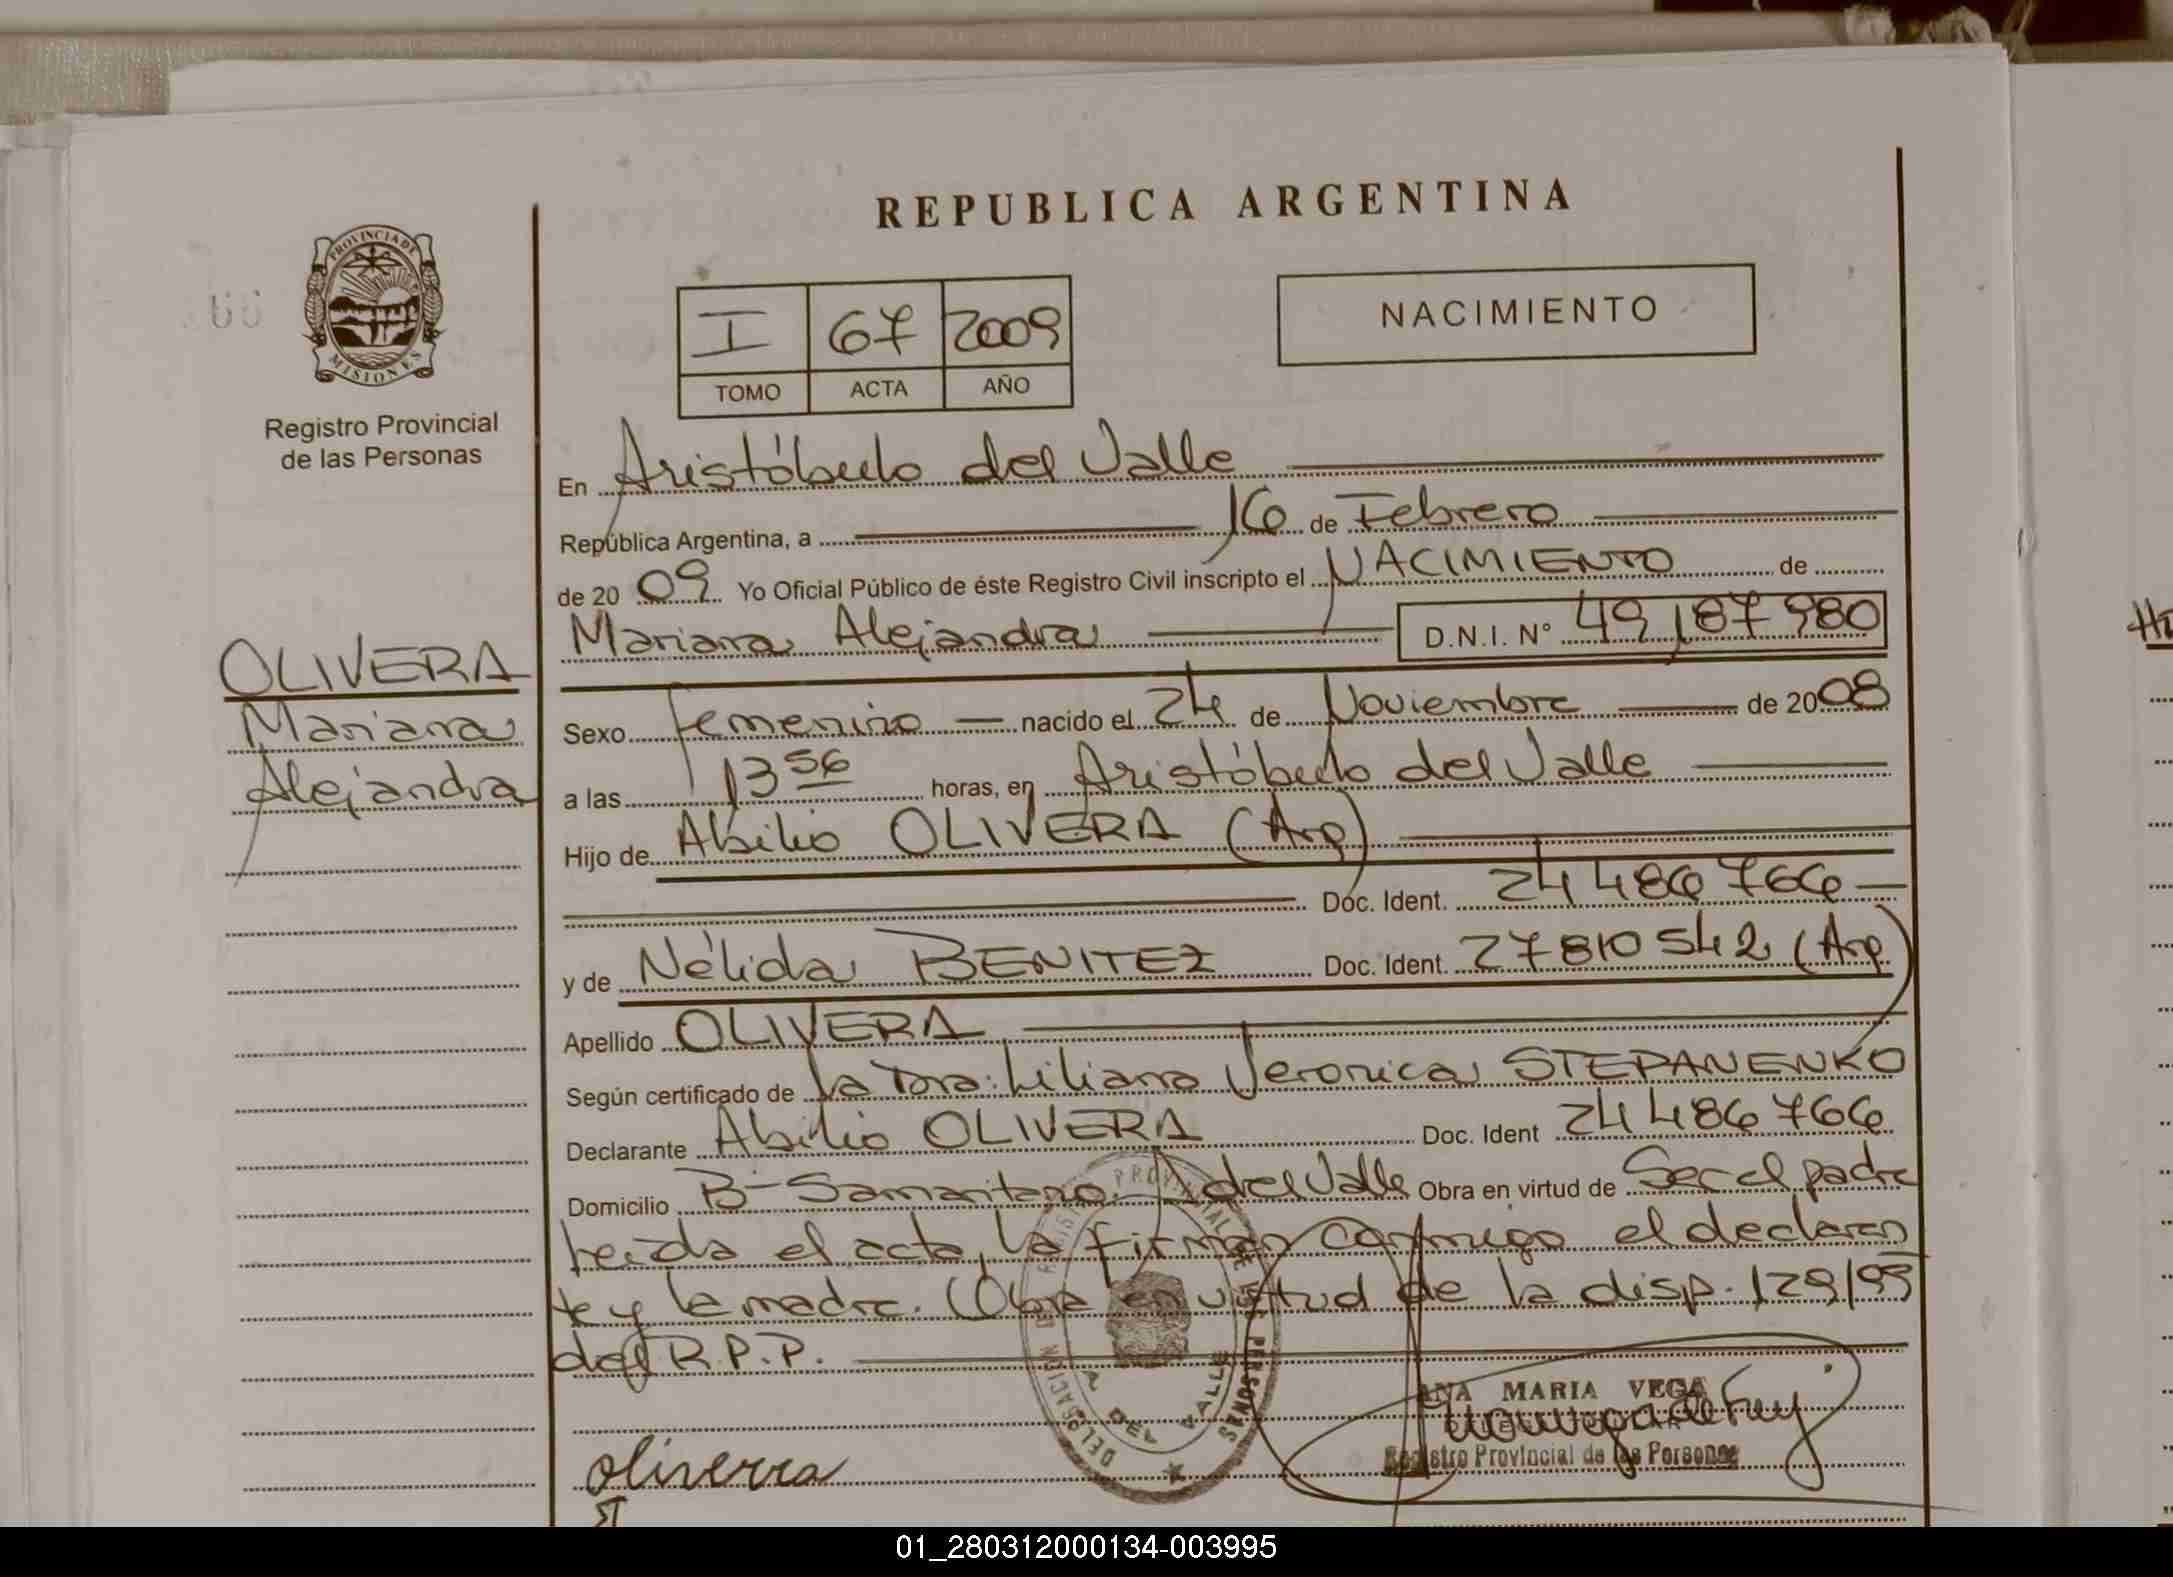 REPUBLICA ARGENTINA
PROVINCIA DE
MISIONES
Registro Provincial
de las Personas
I 67 2009
TOMO ACTA AÑO
NACIMIENTO
En Aristóbulo del Valle
República Argentina, a 16 de Febrero
de 20 09 Yo Oficial Público de éste Registro Civil inscripto el NACIMIENTO de
Mariana Alejandra D.N.I. Nº 49187980
OLIVERA
Mariana
Alejandra
Sexo femenino nacido el 24 de Noviembre de 2008
a las 13 56 horas, en Aristóbulo del Valle
Hijo de Abilio OLIVERA (Arg)
Doc. Ident. 24486766
y de Nélida BENITEZ Doc. Ident. 27810542 (Arg)
Apellido OLIVERA
Según certificado de la Dra: Liliana Veronica STEPANENKO
Declarante Abilio OLIVERA Doc. Ident 24486766
Domicilio Bº Samaritano. A del Valle Obra en virtud de Ser el padre
Leida el acta, la firman conmigo el declaran
te y la madre. (Obra en virtud de la disp. 129/99
del R.P.P.
DELEGACION DEL REGISTRO PROVINCIAL DE LAS PERSONAS
A DEL VALLE
ANA MARIA VEGA
Registro Provincial de las Personas
oliverra
Hu
01_280312000134-003995